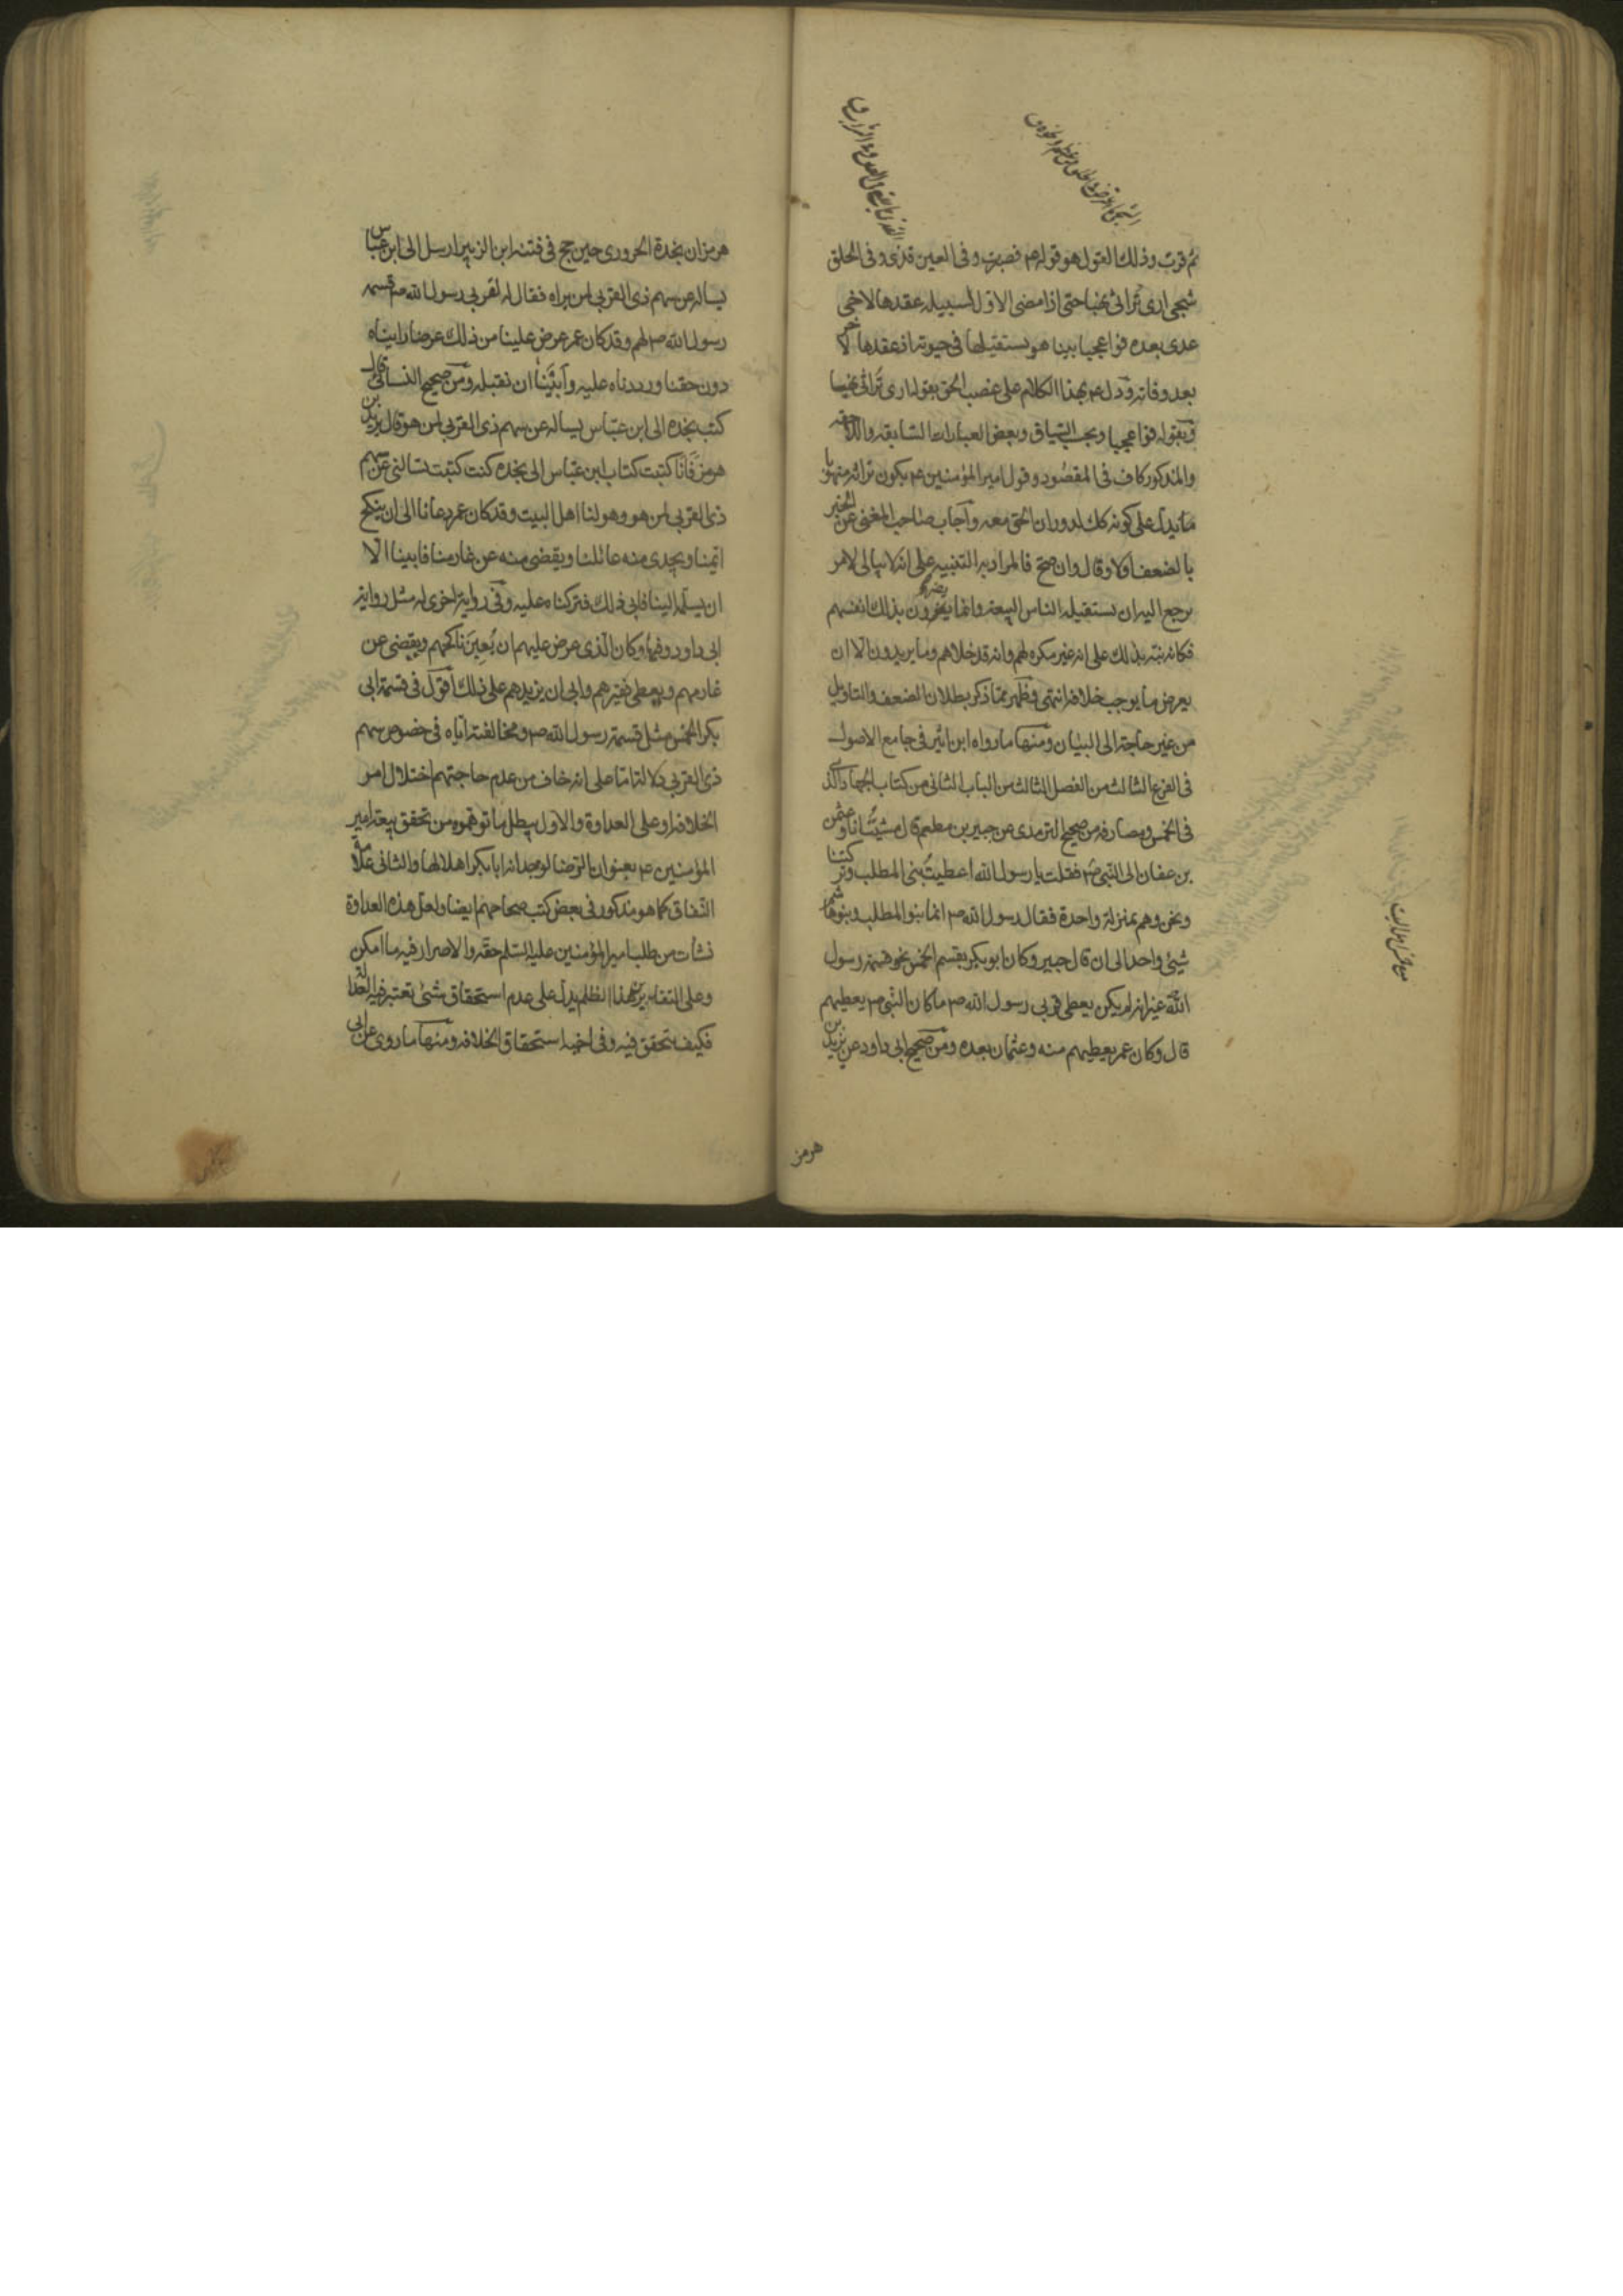 ثم قرت وذلك القول هو قوله ع فصبرت وفى العين قذى وفى الحلق
شجى ارى تراثى نهبا حتى اذا مضى الاول لسبيله عقدها لاخى
عدى بعده فواعجبا بينا هو يستقيلها فى حيوته اذ عقدها لاخر
بعد وفاته ودل ع بهذا الكلام على غصب الحق بقوله ارى تراثى نهبا
وبقوله فواعجبا وبحسب السياق وبعض العبارات السابقة واللاحقه
والمذكور كاف فى المقصود وقول امير المؤمنين ع بكون تراثه منهوبا
مما يدل على كونه كك لدوران الحق معه واجاب صاحب المغنى عن الخبر
بالضعف اولا وقال وان صح فالمراد به التنبيه على انه لا يبالى لامر
يرجع اليه ان يستقيله الناس البيعة وانما يضرون بذلك انفسهم
فكانه نبه بذلك على انه غير مكره لهم وانه قد خلاهم وما يريدون الا ان
يعرض ما يوجب خلافه انتهى وظهر مما ذكر بطلان الضعف والتاويل
من غير حاجة الى البيان ومنها ما رواه ابن اثير فى جامع الاصول
فى الفرع الثالث من الفصل الثالث من الباب الثانى من كتاب الجهاد الذى
فى الخمس ومصارفه من صحيح الترمذى عن جبير بن مطعم قال مشيت انا وعثمن
بن عفان الى النبى ص فقلت يا رسول الله اعطيت بنى المطلب وتركتنا
ونحن وهم بمنزلة واحدة فقال رسول الله ص انما بنو المطلب وبنو هاشم
شيئ واحد الى ان قال جبير وكان ابو بكر يقسم الخمس نحو قسمة رسول
الله غير انه لم يكن يعطى قربى رسول الله ص ما كان النبى ص يعطيهم
قال وكان عمر يعطيهم منه وعثمان بعده ومن صحيح ابى داود عن يزيد بن
هرمز
هرمز ان نجدة الحرورى حين حج فى فتنة ابن الزبير ارسل الى ابن عباس
يساله عن سهم ذى القربى لمن يراه فقال له لقربى رسول الله ص قسمه
رسول الله ص لهم وقد كان عمر عرض علينا من ذلك عرضا رايناه
دون حقنا ورددناه عليه وابينا ان نقبله ومن صحيح النسائى قال
كتب نجده الى ابن عباس يساله عن سهم ذى القربى لمن هو قال يزيد بن
هرمز فانا كتبت كتاب ابن عباس الى نجده كتبت تسالنى عن سهم
ذى القربى لمن هو وهو لنا اهل البيت وقد كان عمر دعانا الى ان ينكح
ايمنا ويجدى منه عائلنا ويقضى منه عن غارمنا فابينا الا
ان يسلمه الينا فابى ذلك فتركناه عليه وفى رواية اخرى له مثل رواية
ابى داود وفيها وكان الذى عرض عليهم ان يعين ناكحهم ويقضى عن
غارمهم ويعطى فقيرهم وابى ان يزيدهم على ذلك اقول فى قسمة ابى
بكر الخمس مثل قسمة رسول الله ص ومخالفته اياه فى خصوص سهم
ذى القربى دلالة تامة على انه خاف من عدم حاجتهم اختلال امر
الخلافة او على العداوة والاول يبطل ما توهموه من تحقق بيعة امير
المؤمنين ع بعنوان الرضا لوجدانه ابا بكر اهلا لها والثانى علامة
النفاق كما هو مذكور فى بعض كتب صحاحهم ايضا ولعل هذه العداوة
نشأت من طلب امير المؤمنين عليه السلم حقه والاصرار فيه ما امكن
وعلى التقديرين هذا الظلم يدل على عدم استحقاق شئ تعتبر فيه العدالة
فكيف يتحقق فيه وفى اخيه استحقاق الخلافة ومنها ما روى عن ابى